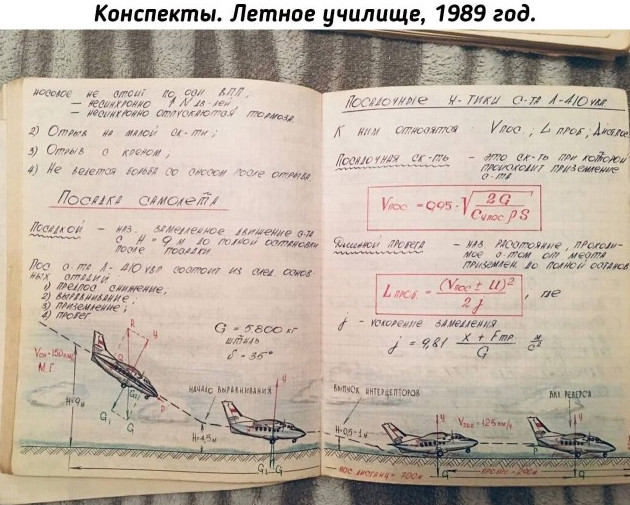 Конспекты. Летное училище, 1989 год.
носовое не стоит по оси ВПП;
— несинхронно ↑ N дв-лей;
— несинхронно отпускаются тормоза
2) Отрыв на малой ск-ти;
3) Отрыв с креном;
4) Не ведется борьба со сносом после отрыва.
Посадка самолета
Посадкой — наз. замедленное движение с-та
с H = 9 м до полной остановки
после посадки
Пос. с-та Л-410 увп состоит из след. основ-
ных стадий
1) предпос снижение;
2) выравнивание;
3) приземление;
4) пробег
G = 5.800 кг
штиль
δ = 35°
М.Г.
H=9м
R
Y
Q
G₁
G
P
начало выравнивания
H=4,5м
Y
G₁ G
Посадочные х-тики с-та Л-410 увп.
К ним относятся Vпос; L проб;
Посадочная ск-ть — это ск-ть при которой
происходит приземление
с-та
Vпос = 0,95 · √(2G / Cyпос ρ S)
Длиной пробега — наз. расстояние, проходи-
мое с-том от места
приземлен. до полной останов
L проб. = (Vпос ± U)² / 2j , где
j - ускорение замедления
j = 9,81 (X + Fтр) / G м/с²
выпуск интерцепторов
H=0,5-1м
Y
Vпос=125 км/ч
G
вкл реверса
Y
P
G